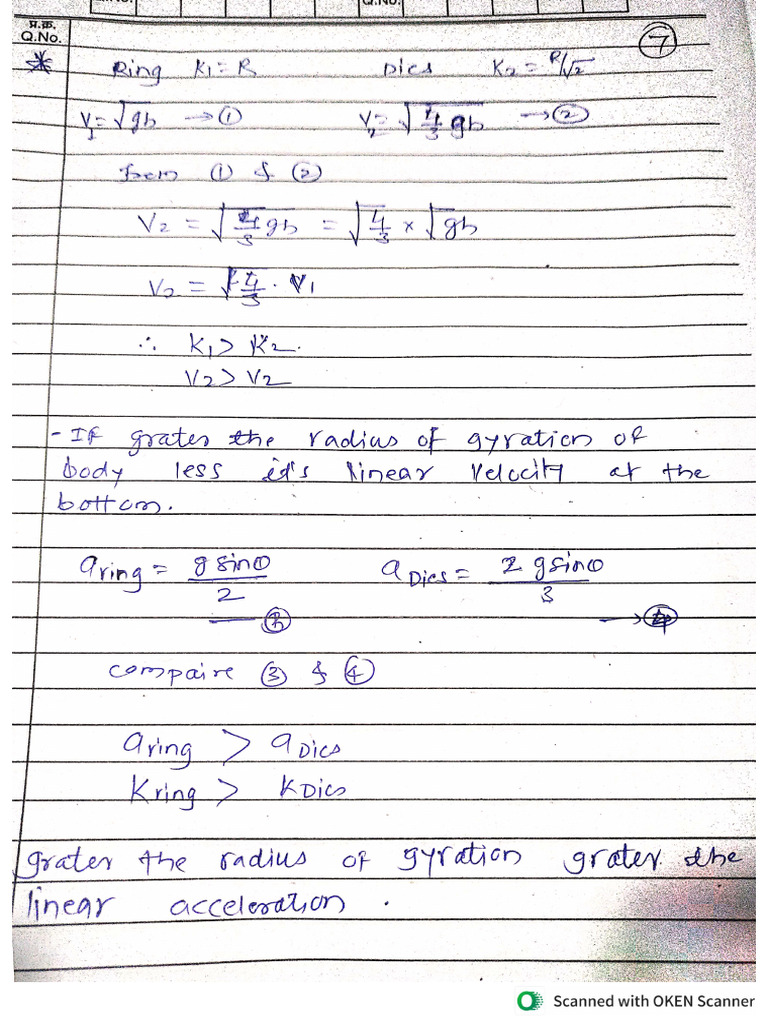 Q.No.
प्र.क्र.
Q.No.
7
* Ring K₁ = R Dics K₂ = R/√2
V₁ = √gh → ① V₂ = √4/3 gh → ②
from ① & ②
V₂ = √4/3 gh = √4/3 × √gh
V₂ = √4/3 · V₁
∴ K₁ > K₂.
V₂ > V₂
- If grater the radius of gyration of
body less it's linear velocity at the
bottom.
a ring = g sinθ / 2 a Dics = 2 g sinθ / 3
— ③ → ④
compaire ③ & ④
a ring > a Dics
K ring > K Dics
grater the radius of gyration grater the
linear acceleration.
Scanned with OKEN Scanner